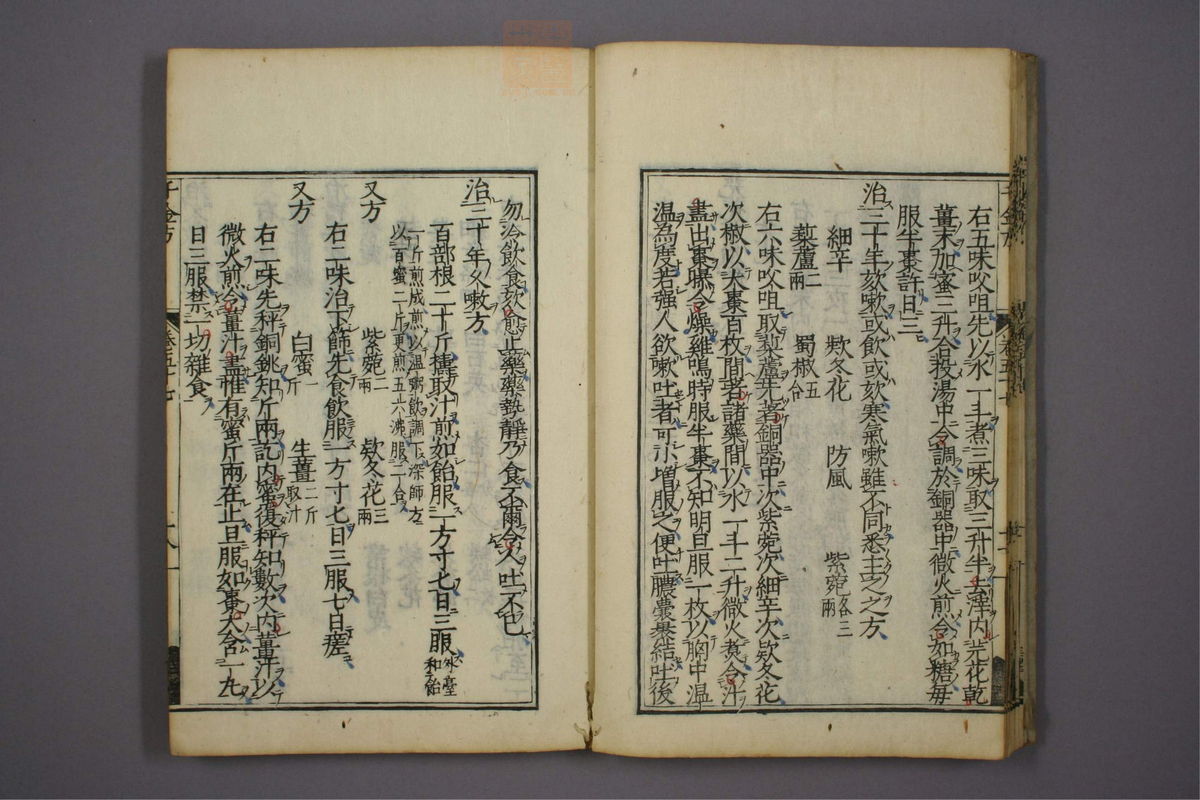 右五味㕮咀先以水一斗煮三味取三升半去滓内芫花乾
薑末加蜜三升合投湯中令調於銅器中微火煎令如糖毎
服半棗許日三
治三十年欬嗽或飲或欬寒氣嗽雖不同悉主之之方
細辛 款冬花 防風 紫菀各三兩
藜蘆二兩 蜀椒五合
右六味㕮咀取藜蘆先著銅器中次紫菀次細辛次款冬花
次椒以大棗百枚間著諸藥間以水一斗二升微火煮令汁
盡出棗曝令燥雞鳴時服半棗不知明旦服一枚以胸中温
温為度若强人欲嗽吐者可小增服之便吐膿囊裹結吐後
勿冷飲食欬愈止藥藥勢靜乃食不爾令人吐不已
治三十年久嗽方
百部根二十斤擣取汁煎如飴服一方寸匕日三服外臺和飴
一斤煎成煎以温粥飲調下深師方
以百蜜二斤更煎五六沸服二合
又方 紫菀二兩 款冬花三兩
右二味治下篩先食飲服一方寸匕日三服七日瘥
又方 白蜜一斤 生薑二斤取汁
右二味先秤銅銚知斤兩訖内蜜復秤知數次内薑汁以
微火煎令薑汁盡惟有蜜斤兩在止旦服如棗大含一丸
日三服禁一切雜食
千金方 卷五十七